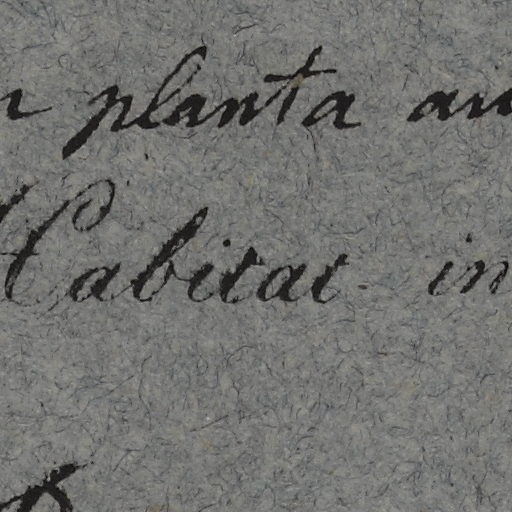 planta
Habitat in